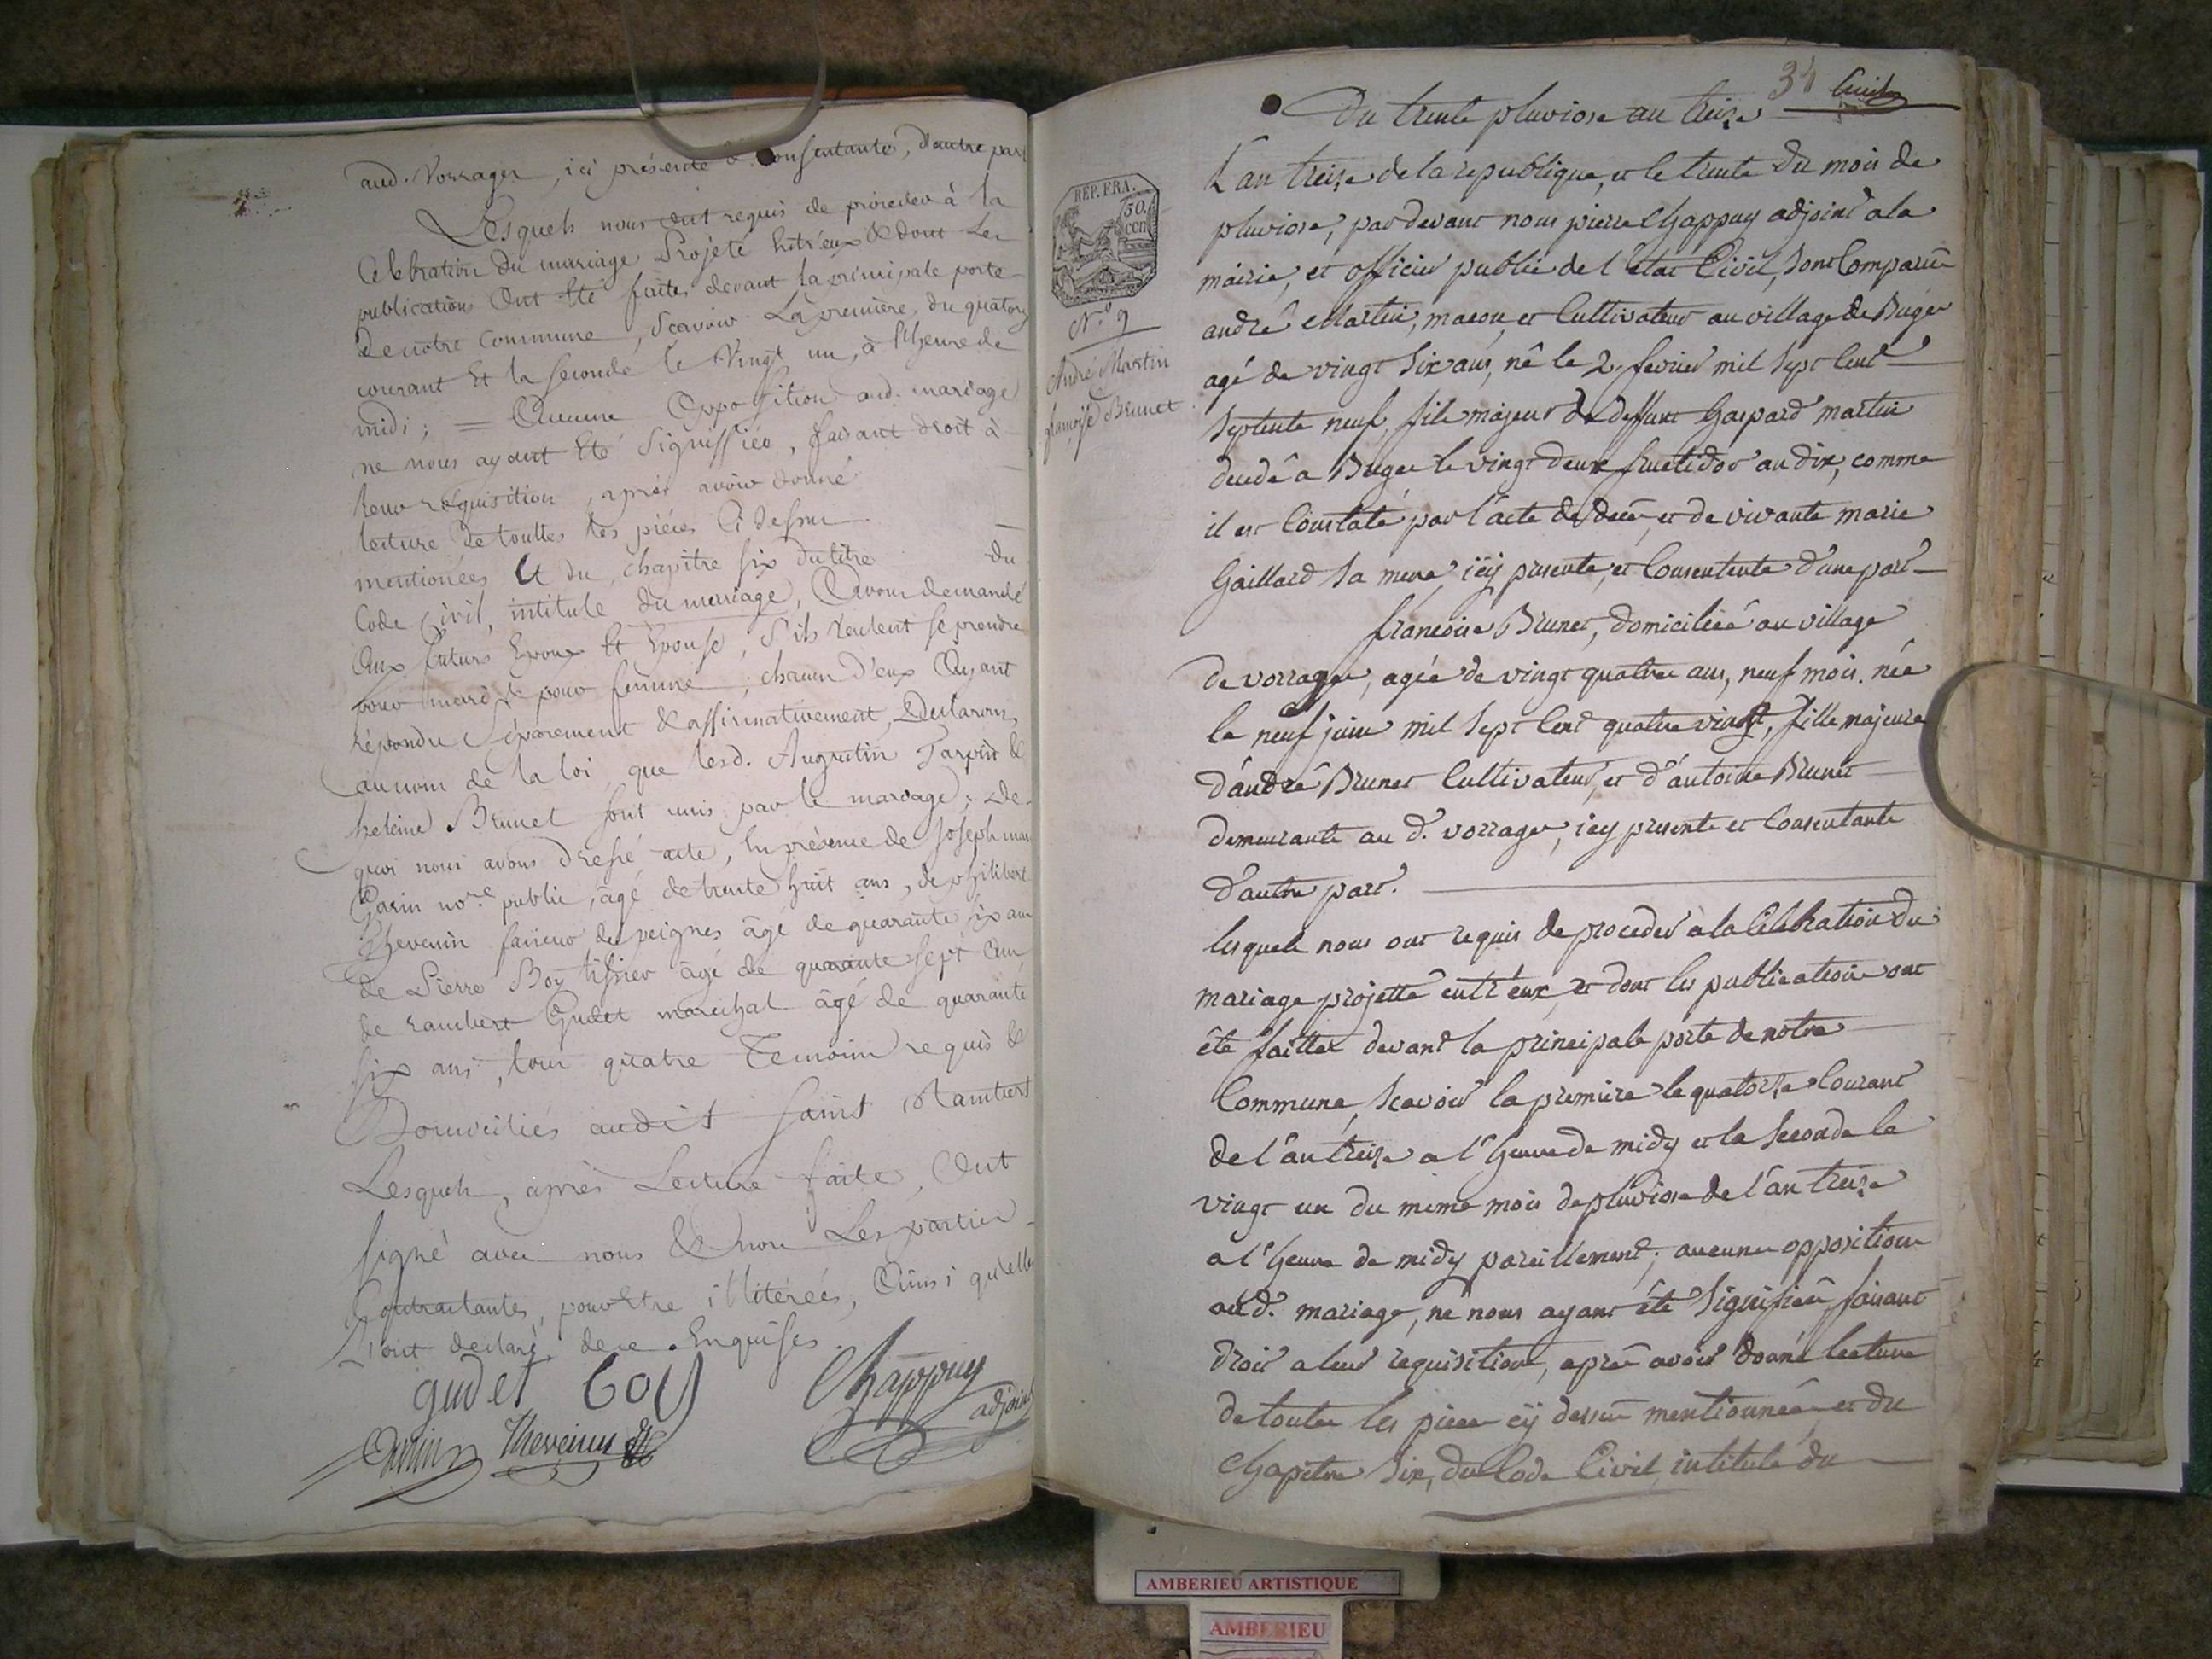 aud. Vorrages, ici présente & consentante, d'autre part
Lesquels nous ont requis de procéder à la
Célébration du mariage Projeté Entr'eux & dont Les
publications Ont Eté faites devant la principale porte
de notre commune, Scavoir La première, du quatorze
courant Et la seconde le Vingt un, à l'heure de
midi; = Aucune Opposition aud. mariage
ne nous ayant Eté Signiffiée, faisant droit à
leur réquisition, après avoir donné
lecture de touttes les pièces Ci dessus
mentionées Et du chapitre six du titre du
Code Civil, intitulé du mariage, Avons demandé
Aux futurs Epoux Et Epouse, S'ils veulent se prendre
pour mari & pour femme; chacun d'eux Ayant
répondu Séparément & affirmativement, Declarons,
au nom de la loi, que lesd. Augustin Tarpin &
heleine Brunet sont unis par le mariage; De
quoi nous avons dressé acte, En présence de Joseph marie
Garin no.re public, âgé de trente huit ans, de philibert
Thevenin faiseur de peignes âgé de quarante six ans
de Pierre Boy tissier âgé de quarante sept ans
de rambert Gudet marechal âgé de quarante
six ans, tous quatre Temoins requis &
Domiciliés audit Saint Rambert
Lesquels, après Lecture faite, Ont
signé avec nous & non Les parties
Contractantes, pour Etre illitérées, Ainsi qu'elles
L'ont declaré de ce Enquises.
gudet boy Chappuy
adjoint
Garin Thevenin
34 huit
Du trente pluviose an treize
REP. FRA.
50.
cen
N.o 9
André Martin
&
françoise Brunet
L'an treize de la republique, et le trente du mois de
pluviose, par devant nous pierre Chappuy adjoint a la
mairie, et officier public de l'état Civil, sont Comparus
andré Martin, macon et Cultivateur au village de Buges
agé de vingt six ans, né le 2. fevrier mil sept Cent
septente neuf, fils majeur de deffunt Gaspard martin
decedé a Buges le vingt deux fructidor an dix, comme
il est Constaté par l'acte de deces et de vivante marie
Gaillard sa mere, icy presente, et Consentente d'une part
francoise Brunet, domiciliée au village
de vorrages, agée de vingt quatre ans, neuf mois. née
le neuf juin mil sept Cent quatre vingt, fille majeure
d'andré Brunet Cultivateur, et d'antoine Brunet
demeurante au d. vorrages, icy presente et Consentante
d'autre part.
lesquels nous ont requis de proceder a la Celebration du
mariage projetté entr'eux, et dont les publications ont
été faittes devant la principale porte de notre
Commune, scavoir la premiere le quatorze Courant
de l'an treize a l'heure de midy et la seconde le
vingt un du meme mois de pluviose de l'an treize
a l'heure de midy pareillement; aucune opposition
aud. mariage, ne nous ayant été signifiée faisant
droit a leur requisition, aprés avoir donné lecture
de toutes les pieces cÿ dessus mentionnées et du
chapitre six, du Code Civil intitulé du
AMBERIEU ARTISTIQUE
AMBERIEU